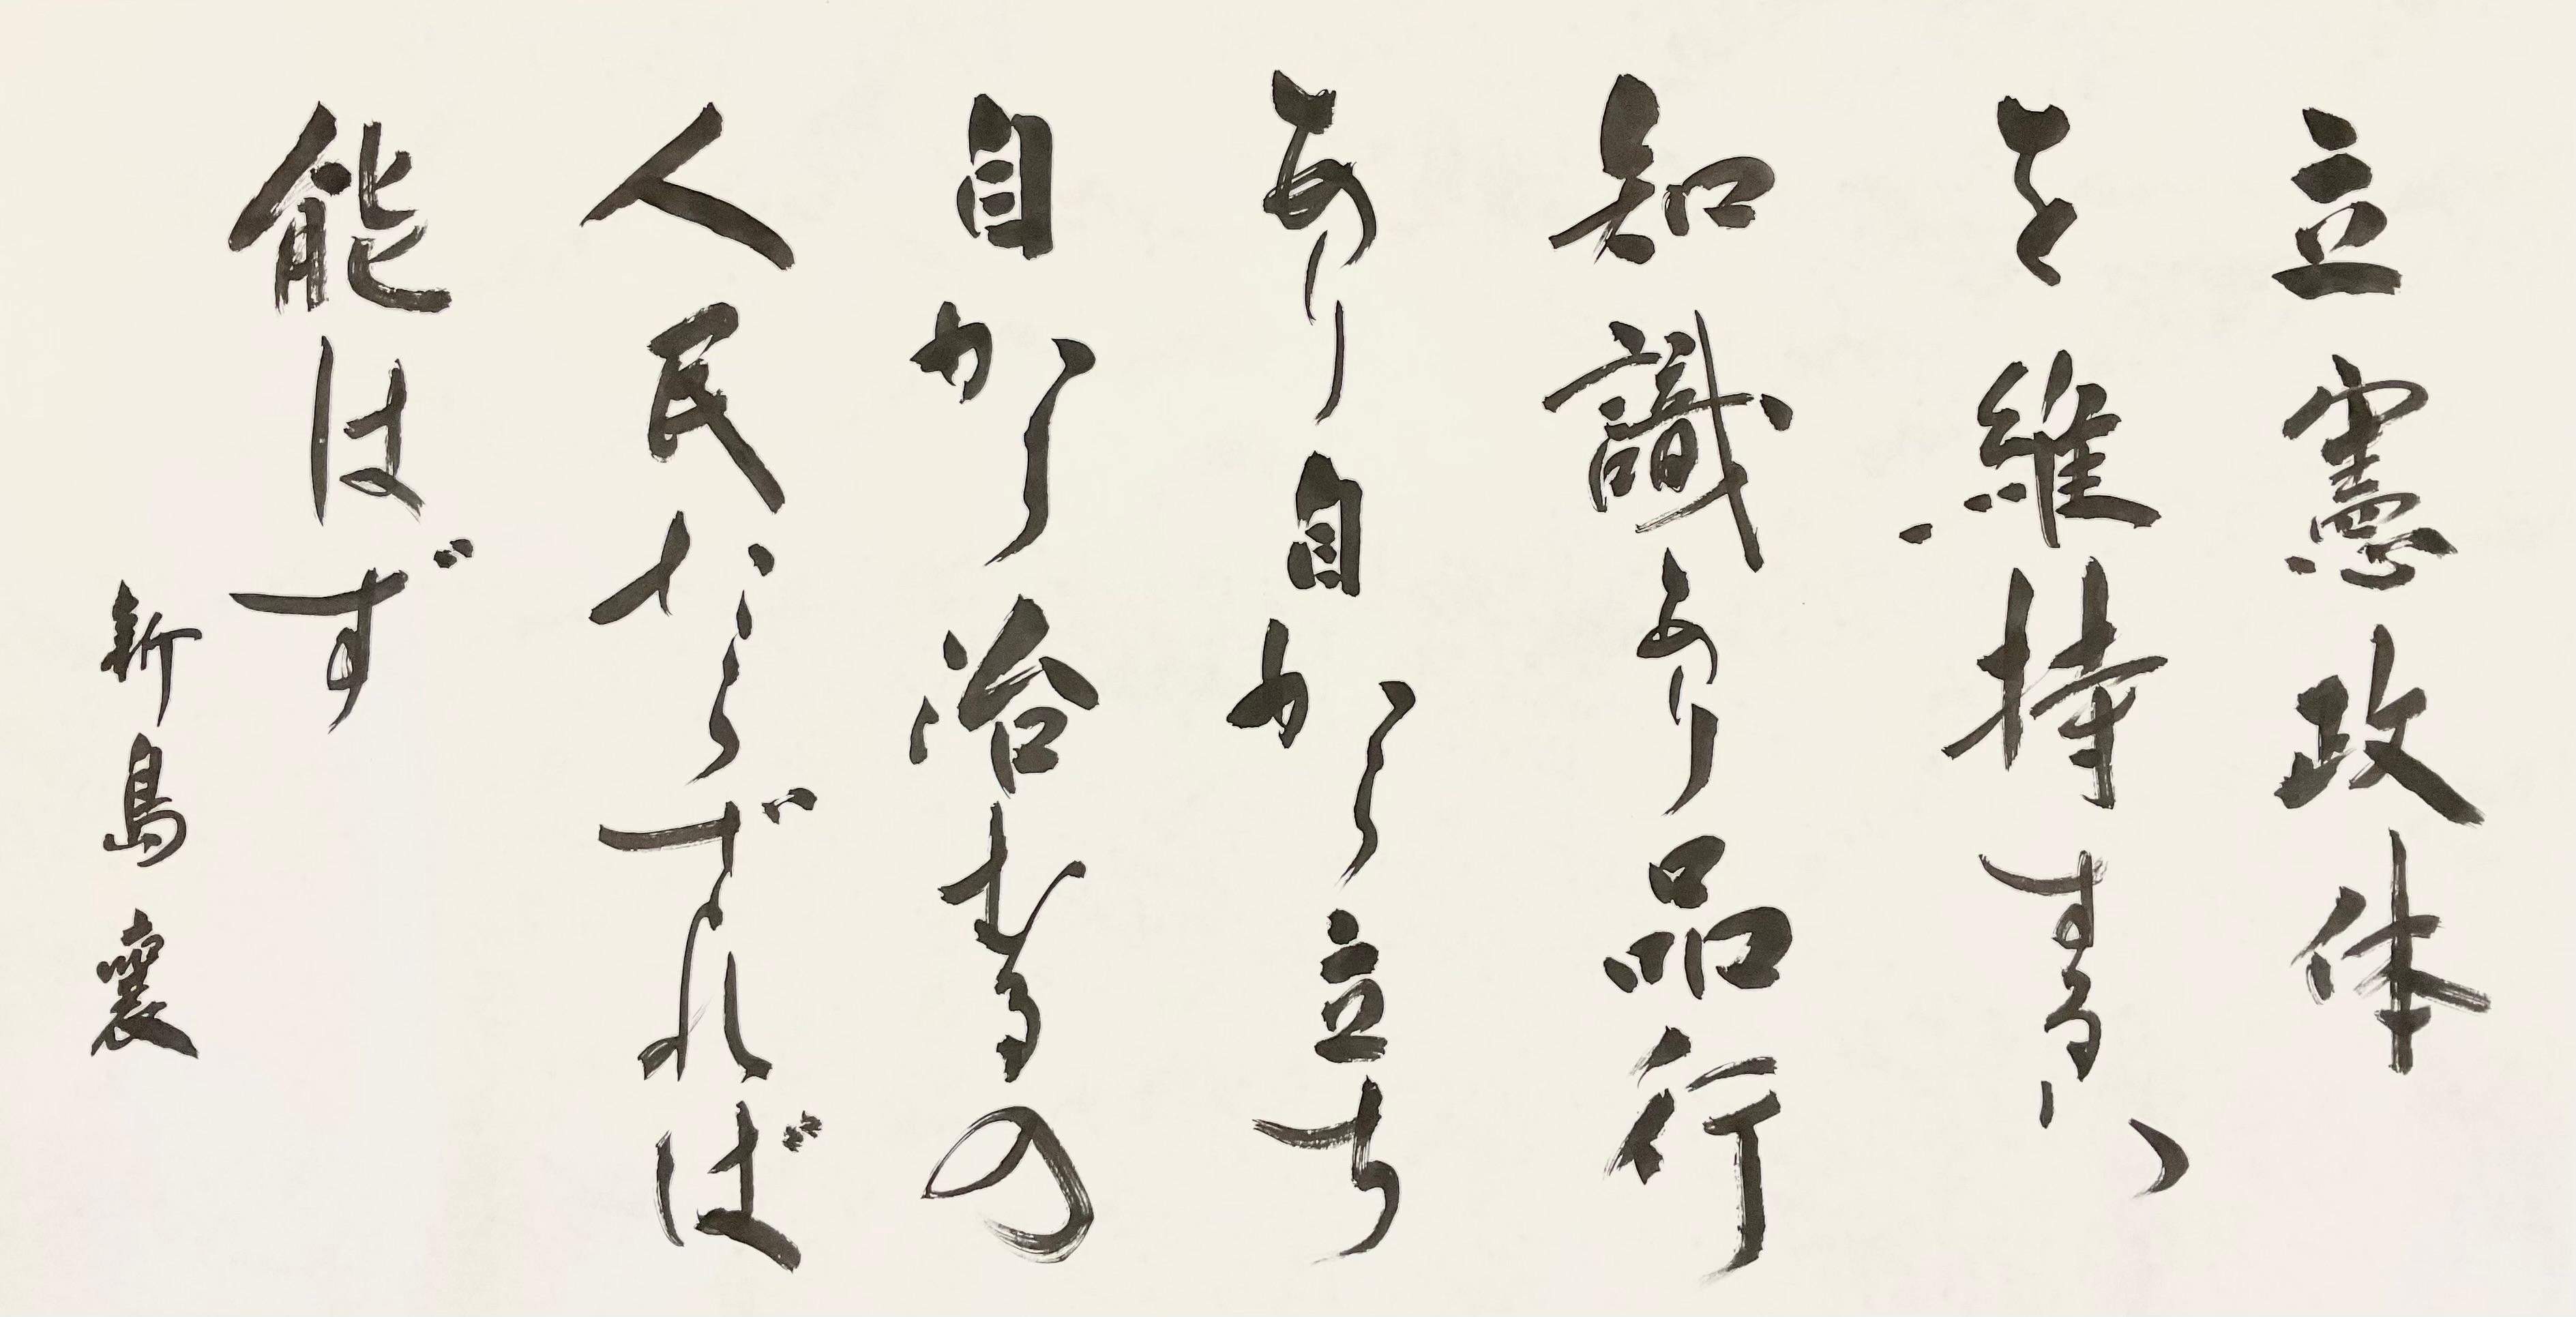 立憲政体
を維持するハ
知識あり品行
あり自から立ち
自から治むるの
人民ならざれば
能はず
新島襄